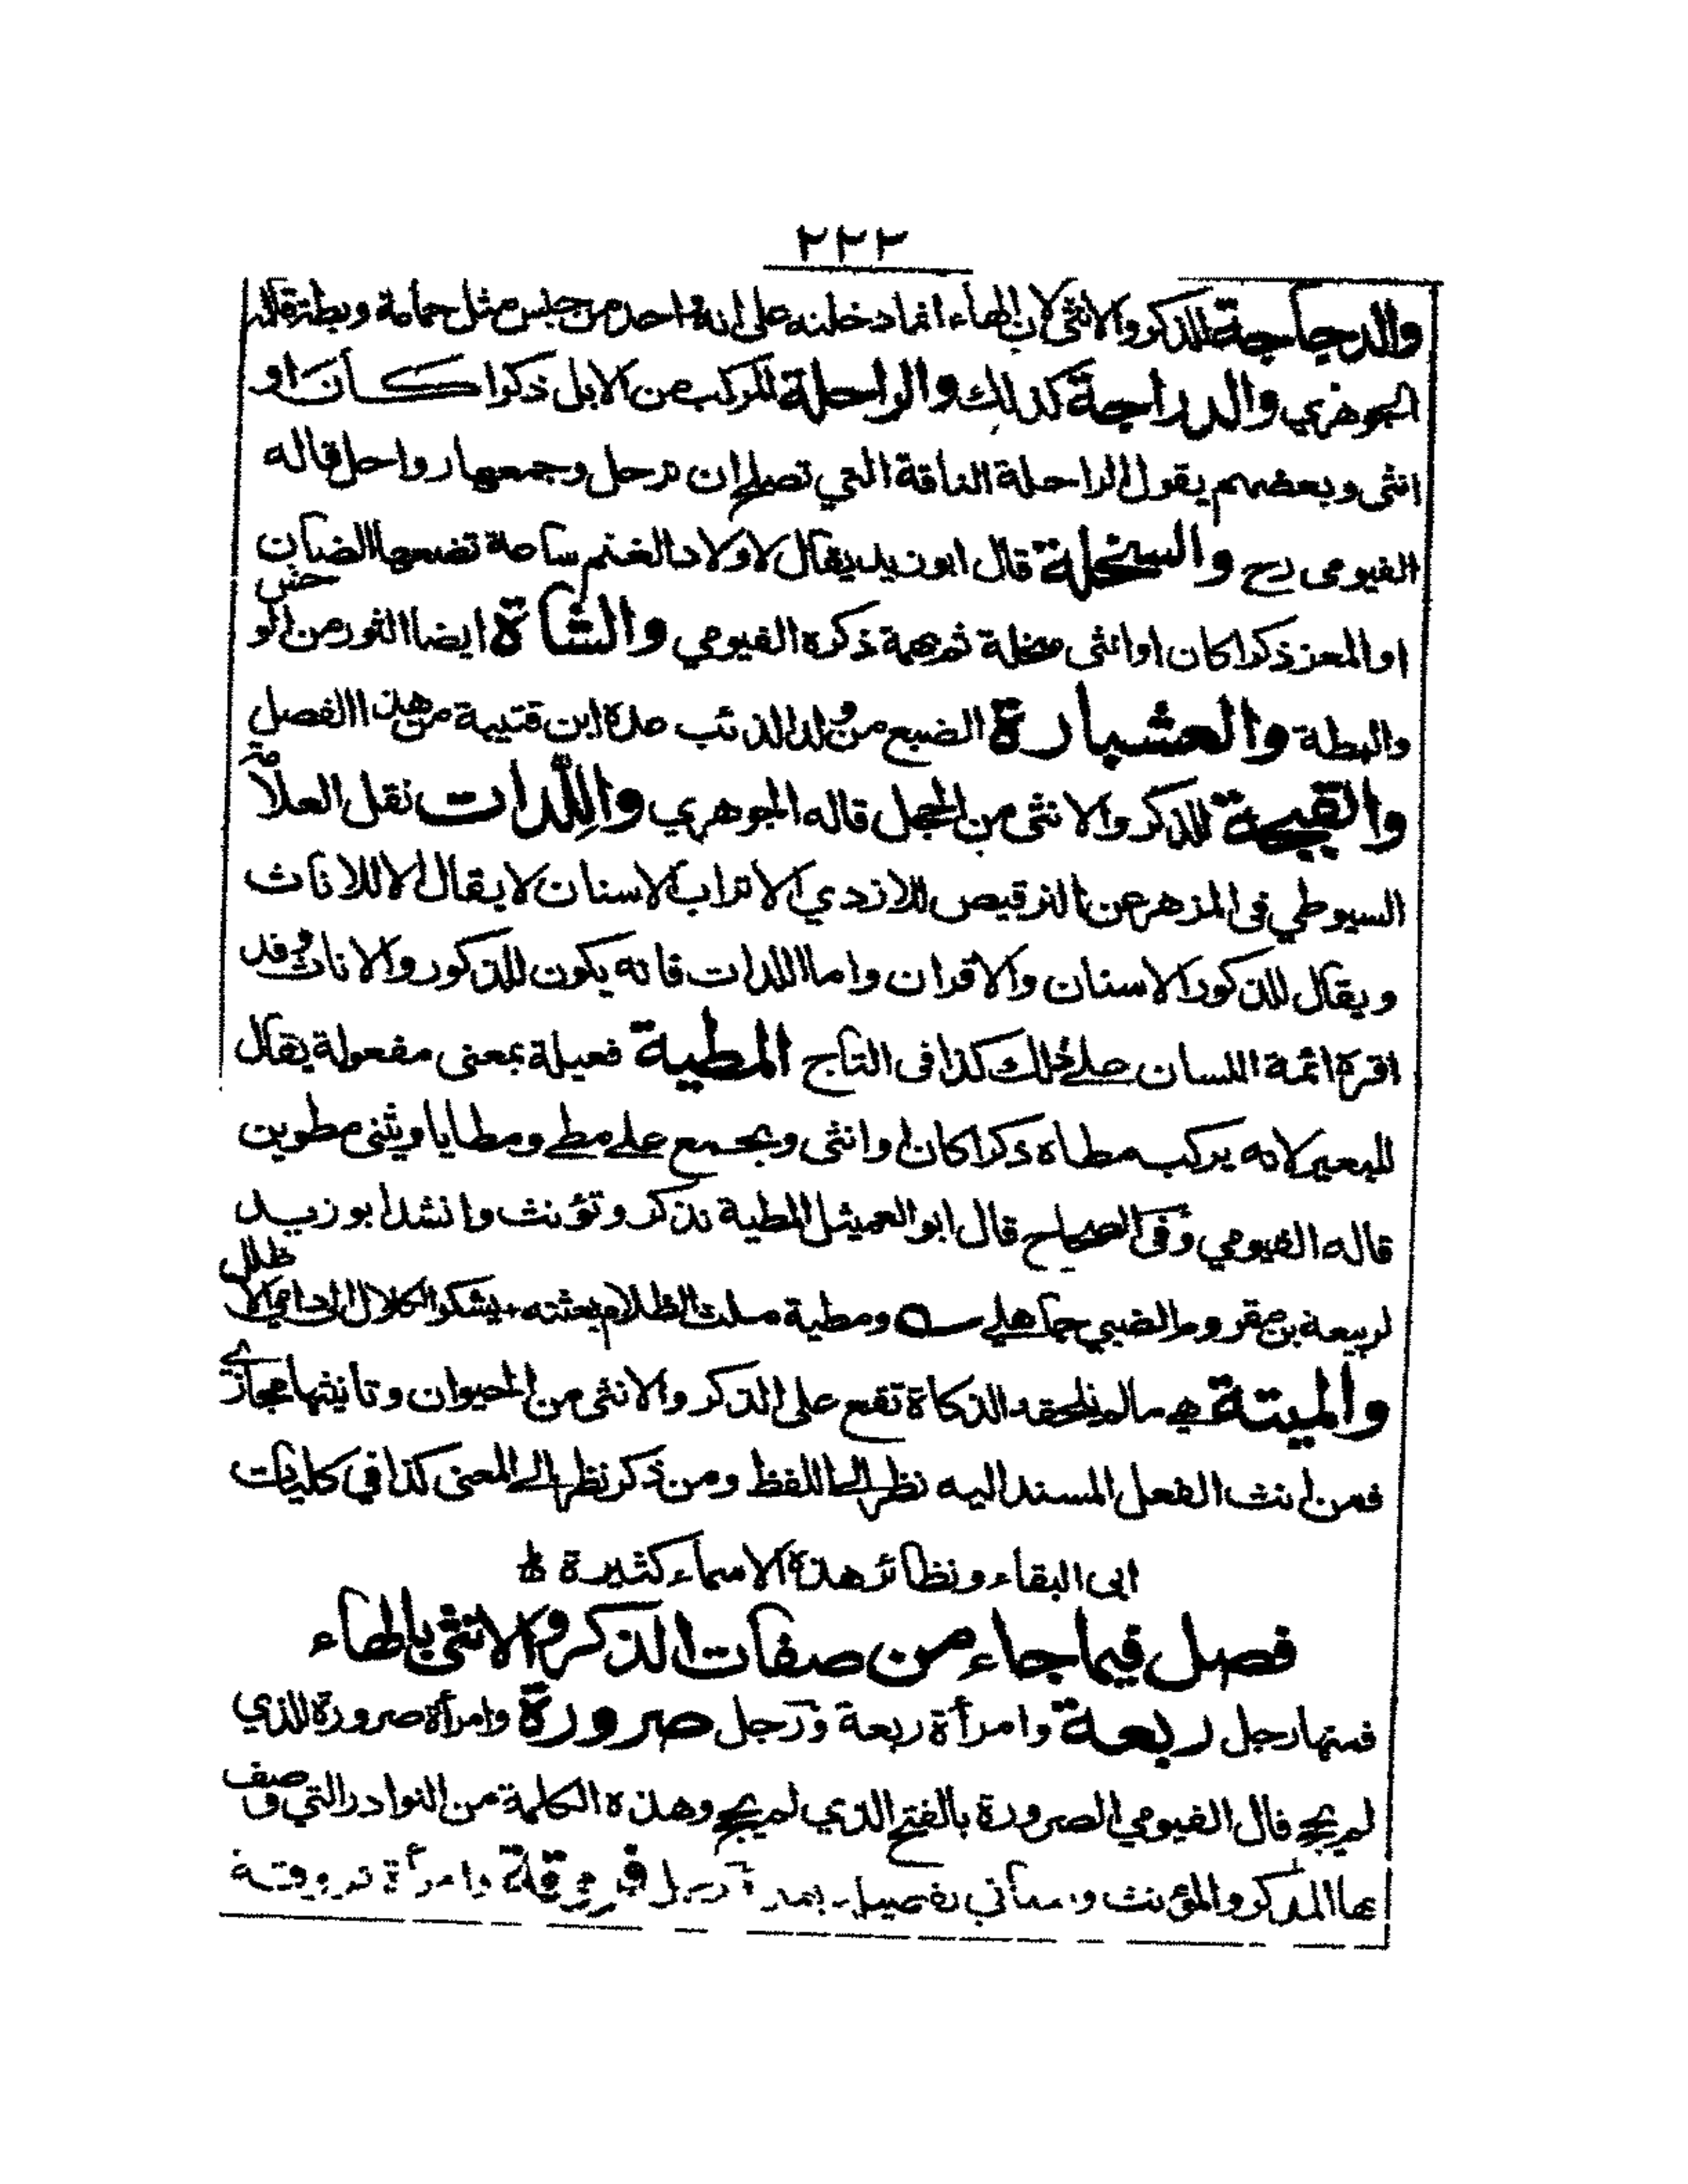 ٢٢٢
والدجاجة للذكر والانثى لان الهاء انما دخلته على انه واحد من جنس مثل حمامة وبطة قاله
الجوهري والدراجة كذلك والراحلة المركب من الابل ذكرا كان او
انثى وبعضهم يقول الراحلة الناقة التي تصلح ان ترحل وجمعها رواحل قاله
الفيومى رح والسخلة قال ابو زيد يقال لاولاد الغنم ساعة تضعها الضان
او المعز ذكرا كان او انثى سخلة ثم بهمة ذكره الفيومي والشاة ايضا الثور من الوحش
والبطة والعشبارة الضبع من ولد الذئب عده ابن قتيبة من هذا الفصل
والقبجة للذكر والانثى من الحجل قاله الجوهري واللدات نقل العلامة
السيوطي فى المزهر عن الترقيص للازدي الاتراب الاسنان لا يقال الا للاناث
ويقال للذكور الاسنان والاقران واما اللدات فانه يكون للذكور والاناث وقد
اقره ائمة اللسان على ذلك كذا فى التاج المطية فعيلة بمعنى مفعولة يقال
للبعير لانه يركب مطاه ذكرا كان او انثى ويجمع على مطي ومطايا ويثنى مطوين
قاله الفيومي وفى الصحاح قال ابو العميثل المطية تذكر وتؤنث وانشد ابو زيد
لربيعة بن مقروم الضبي جاهلي ومطية ملث الظلام بعثته يشكو الكلال الي دامي الاظلل
والميتة هي مالم تلحقه الذكاة تقع على الذكر والانثى من الحيوان وتانيثها مجازي
فمن انث الفعل المسند اليه نظر الى اللفظ ومن ذكر نظر الى المعنى كذا في كليات
ابى البقاء ونظائر هذه الاسماء كثيرة
فصل فيما جاء من صفات الذكر والانثى بالهاء
فمنها رجل ربعة وامرأة ربعة ورجل صرورة وامرأة صرورة للذي
لم يحج قال الفيومي الصرورة بالفتح الذي لم يحج وهذه الكلمة من النوادر التي وصف
بها المذكر والمؤنث وسيأتي تفصيل وامرأة فروقة